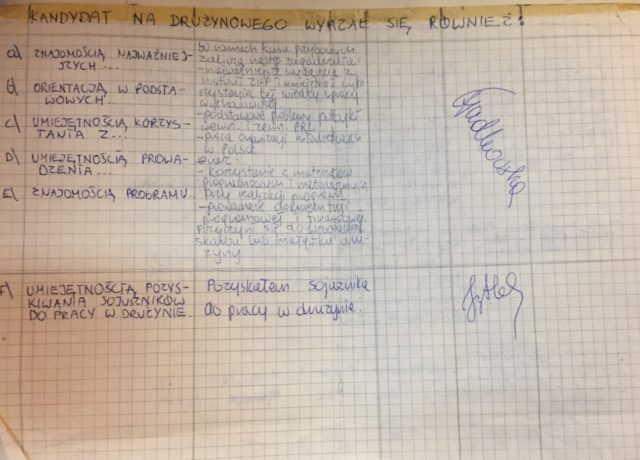 KANDYDAT NA DRUŻYNOWEGO WYKAZAŁ SIĘ RÓWNIEŻ:
a) ZNAJOMOŚCIĄ NAJWAŻNIEJ-
SZYCH...
b) ORIENTACJĄ W PODSTA-
WOWYCH...
c) UMIEJĘTNOŚCIĄ KORZYS-
TANIA Z...
D) UMIEJĘTNOŚCIĄ PROWA-
DZENIA...
E) ZNAJOMOŚCIĄ PROGRAMU..
W ramach kursu przybocznych
nast. zagadnienia:
- najważniejsze wydarzenia z
historii ZHP i umiejętność wyko-
rzystania tej wiedzy w pracy
wychowawczej
- podstawowe problemy polityki
wewn. i zewn. PRL
- praca organizacji młodzieżowych
w Polsce
oraz:
- korzystanie z materiałów
i metodycznych
przy realizacji programu
- prowadzenie dokumentacji
programowej i finansowej
się do
lub majątku dru-
żyny
F) UMIEJĘTNOŚCIĄ POZYS-
KIWANIA SOJUSZNIKÓW
DO PRACY W DRUŻYNIE.
Pozyskałem sojusznika
do pracy w drużynie.